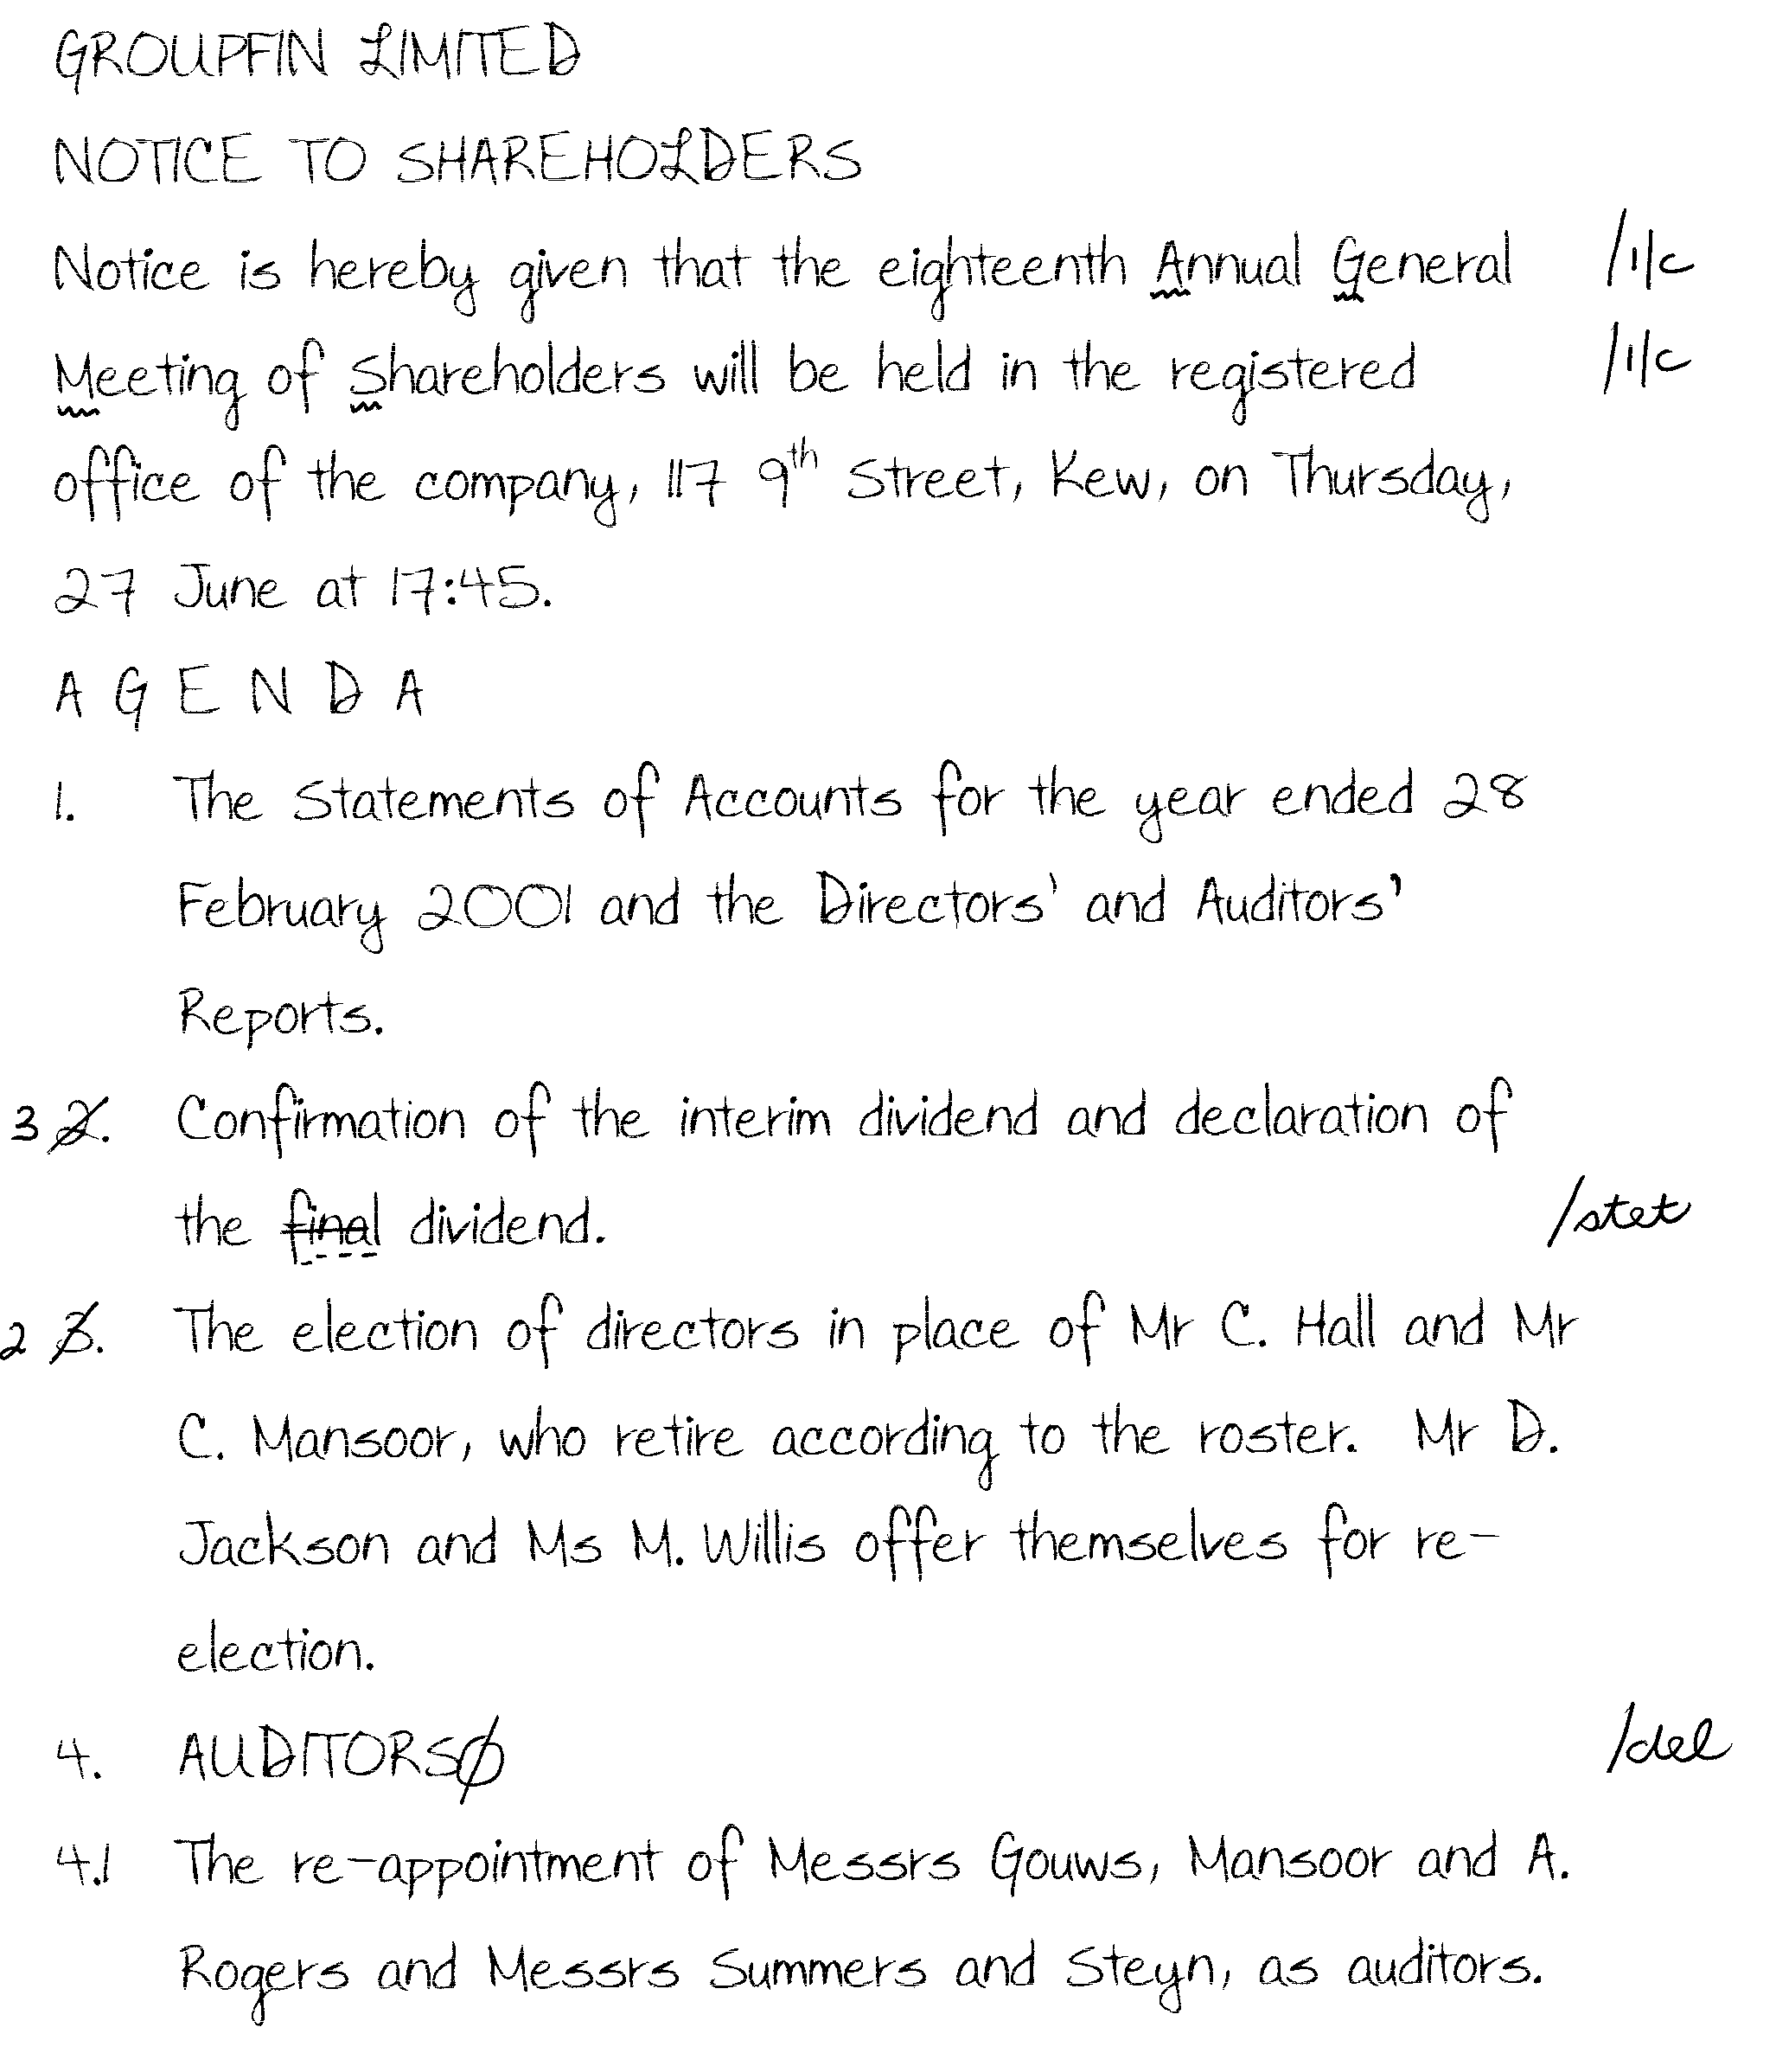 GROUPFIN LIMITED
NOTICE TO SHAREHOLDERS
Notice is hereby given that the eighteenth Annual General /l/c
Meeting of Shareholders will be held in the registered /l/c
office of the company, 117 9th Street, Kew, on Thursday,
27 June at 17:45.
A G E N D A
1. The Statements of Accounts for the year ended 28
February 2001 and the Directors' and Auditors'
Reports.
3 2. Confirmation of the interim dividend and declaration of
the final dividend. /stet
2 3. The election of directors in place of Mr C. Hall and Mr
C. Mansoor, who retire according to the roster. Mr D.
Jackson and Ms M. Willis offer themselves for re-
election.
4. AUDITORS /del
4.1 The re-appointment of Messrs Gouws, Mansoor and A.
Rogers and Messrs Summers and Steyn, as auditors.